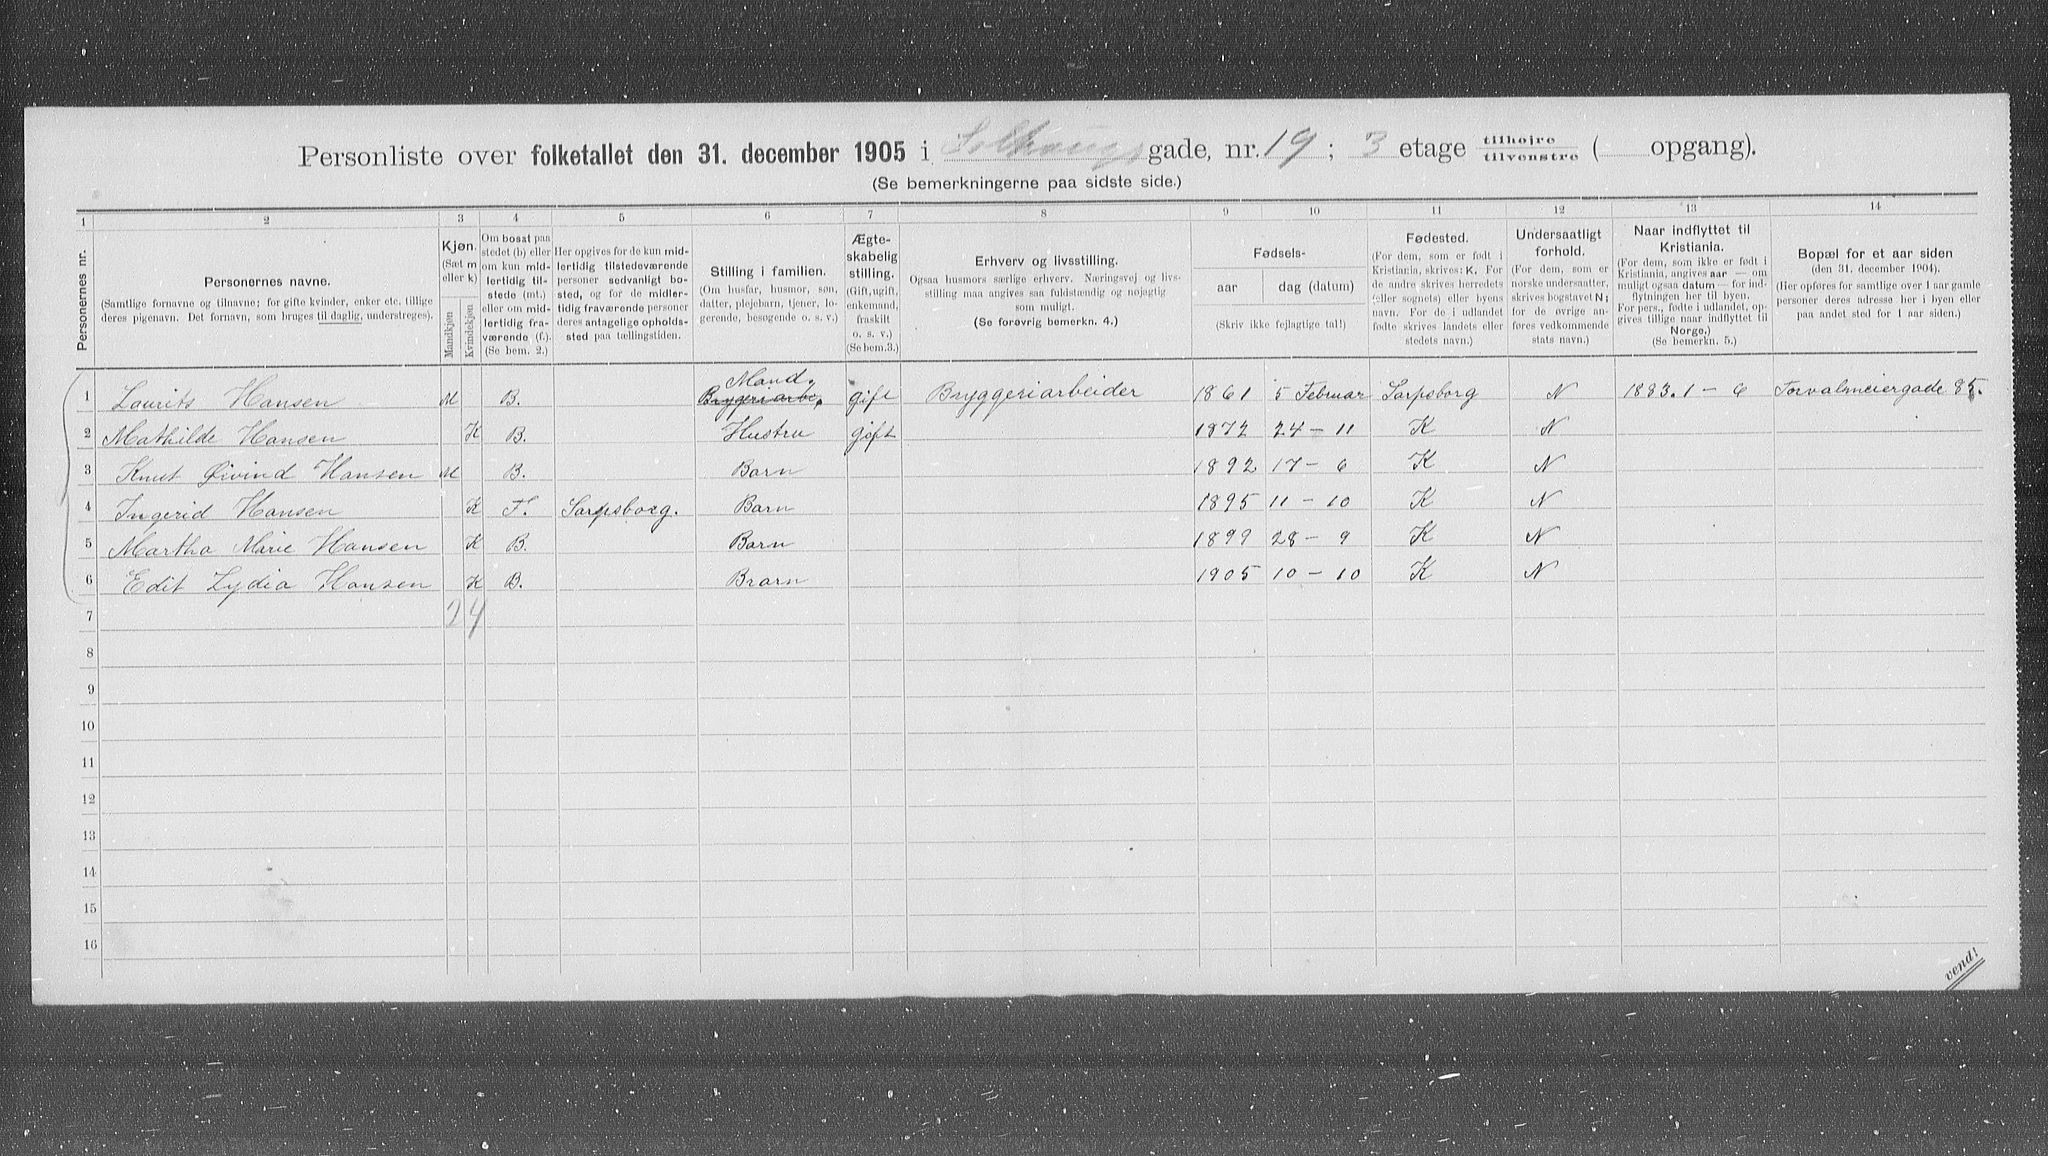 Personliste over folketallet den 31. december 1905 i Solhaugs gade, nr. 19 ; 3 etage tilhøjre tilvenstre ( opgang).
(Se bemerkningerne paa sidste side.)
1 2 3 4 5 6 7 8 9 10 11 12 13 14
Personernes nr.
Personernes navne.
(Samtlige fornavne og tilnavne; for gifte kvinder, enker etc. tillige deres pigenavn. Det fornavn, som bruges til daglig, understreges).
Kjøn. (Sæt m eller k)
Mandkjøn
Kvindekjøn
Om bosat paa stedet (b) eller om kun midlertidig tilstede (mt.) eller om midlertidig fraværende (f.). (Se bem. 2.)
Her opgives for de kun midlertidig tilstedeværende personer sedvanligt bosted, og for de midlertidig fraværende personer deres antagelige opholdssted paa tællingstiden.
Stilling i familien.
(Om husfar, husmor, søn, datter, plejebarn, tjener, logerende, besøgende o. s. v.)
Ægteskabelig stilling.
(Gift, ugift, enkemand, fraskilt o. s. v.) (Se bem.3.)
Erhverv og livsstilling.
Ogsaa husmors særlige erhverv. Næringsvej og livsstilling maa angives saa fuldstændig og nøjagtig som muligt.
(Se forøvrig bemerkn. 4.)
Fødsels-
aar
dag (datum)
(Skriv ikke fejlagtige tal!)
Fødested.
(For dem, som er født i Kristiania, skrives: K. For de andre skrives herredets (eller sognets) eller byens navn. For de i udlandet fødte skrives landets eller stedets navn.)
Undersaatligt forhold.
(For dem, som er norske undersaatter, skrives bogstavet N; for de øvrige anføres vedkommende stats navn.)
Naar indflyttet til Kristiania.
(For dem, som ikke er født i Kristiania, angives aar — om muligt ogsaa datum — for indflytningen her til byen. For pers., fødte i udlandet, opgives tillige naar indflyttet til Norge.) (Se bemerkn. 5.)
Bopæl for et aar siden
(den 31. december 1904).
(Her opføres for samtlige over 1 aar gamle personer deres adresse her i byen eller paa andet sted for 1 aar siden.)
1 Laurits Hansen M B. Bryggeriarbe. Mand. gift Bryggeriarbeider 1861 5 Februar Sarpsborg N 1883. 1 - 6 Torvalmeiergade 85.
2 Mathilde Hansen K B. Hustru gift 1872 24 - 11 K N
3 Knut Øivind Hansen M B. Barn 1892 17 - 6 K N
4 Ingerid Hansen K F. Sarpsborg. Barn 1895 11 - 10 K N
5 Martha Marie Hansen K B. Barn 1899 28 - 9 K N
6 Edit Lydia Hansen K B. Brarn 1905 10 - 10 K N
7 2 4
8
9
10
11
12
13
14
15
16
vend!